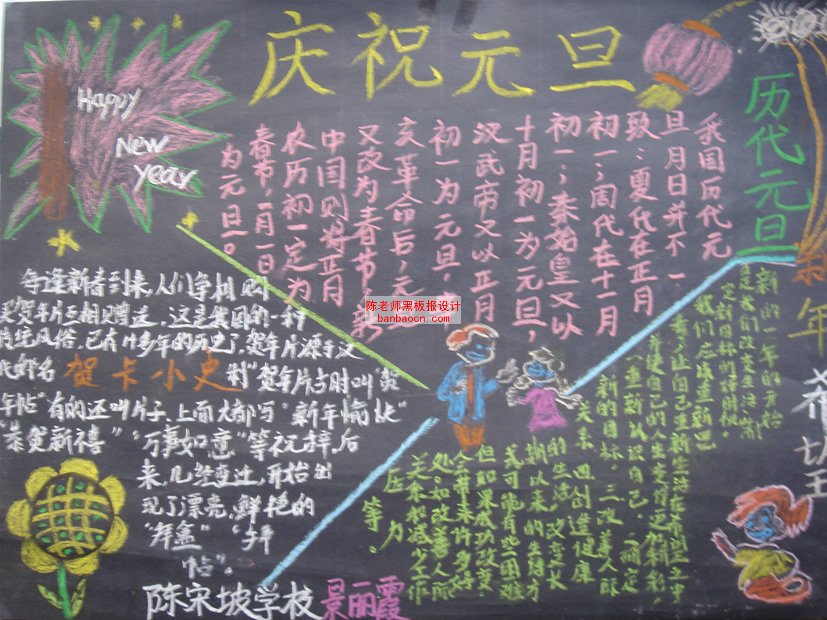 庆祝元旦
Happy
New
year
历代元旦
我国历代元
旦月日并不一
致：夏代在正月
初一；周代在十一月
初一；秦始皇又以
十月初一为元旦，
汉武帝又以正月
初一为元旦，
亥革命后，元
又改为春节，新
中国则将正月
农历初一定为
春节，一月一日
为元旦。
陈老师黑板报设计
banbaocn.com
每逢新春到来，人们争相购
买贺年片互相赠送 这是我国的一种
传统风俗，已有 多年的历史了，贺年片源于汉
贺卡小史
"贺年片当时叫
年帖"有的还叫片子，上面大都写"新年愉快"
"恭贺新禧""万事如意"等祝辞，后
来，几经变迁，开始出
现了漂亮，鲜艳的
"拜盒" "拜
帖"。
新年希望
新的一年的开始
是我们改变生活 新
定目标的好时机。
我们应该重新思
考，让自己重新生活在希望之中
并使自己的人生变得更加精彩，
重新认识自己， 确定
新的目标， 改善人际
关系， 创造健康
的生活，改变长
期以来的生活方
式可能有些困难
但如果成功改变，
会带来许多好
处，如改善人际
关系和减少工作
压力
等。
陈宋坡学校 景丽霞